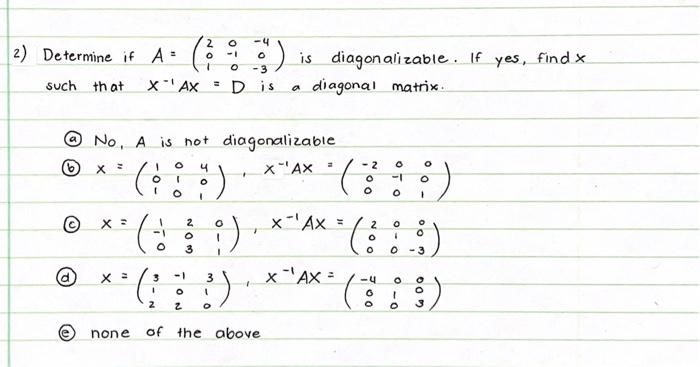 2) Determine if A = ( 2 0 -4 ; 0 -1 0 ; 1 0 -3 ) is diagonalizable. If yes, find x
such that x⁻¹Ax = D is a diagonal matrix.
ⓐ No, A is not diagonalizable
ⓑ x = ( 1 0 4 ; 0 1 0 ; 1 0 1 ), x⁻¹Ax = ( -2 0 0 ; 0 -1 0 ; 0 0 1 )
ⓒ x = ( 1 2 0 ; -1 0 1 ; 0 3 1 ), x⁻¹Ax = ( 2 0 0 ; 0 1 0 ; 0 0 -3 )
ⓓ x = ( 3 -1 3 ; 1 0 1 ; 2 2 0 ), x⁻¹Ax = ( -4 0 0 ; 0 1 0 ; 0 0 3 )
ⓔ none of the above